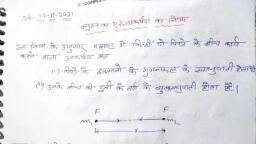 न्यूटन का गुरुत्वाकर्षण का नियम
इस नियम के अनुसार ब्रह्माण्ड में किसी भी पिण्डो के बीच कार्य
करने वाला आकर्षण बल
(i) पिंडो के द्रव्यमानो के गुणनफल के समानुपाती होता है
(ii) उनके बीच की दूरी के वर्ग के व्युत्क्रमानुपाती होता है।
F F
m₁ m₂
r